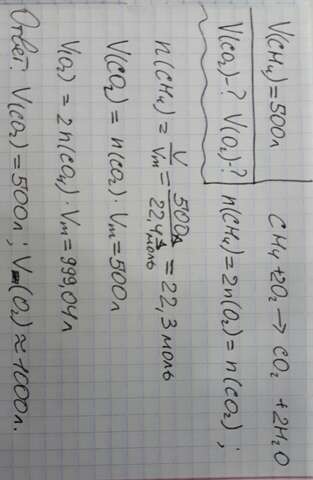 V(CH₄)=500л
CH₄+2O₂→CO₂+2H₂O
V(CO₂)-? V(O₂)-?
n(CH₄)=2n(O₂)=n(CO₂);
n(CH₄)=V/Vm=500л/22,4 л/моль=22,3 моль
V(CO₂)=n(CO₂)·Vm=500л
V(O₂)=2n(CH₄)·Vm=999,04л
Ответ: V(CO₂)=500л; V(O₂)≈1000л.